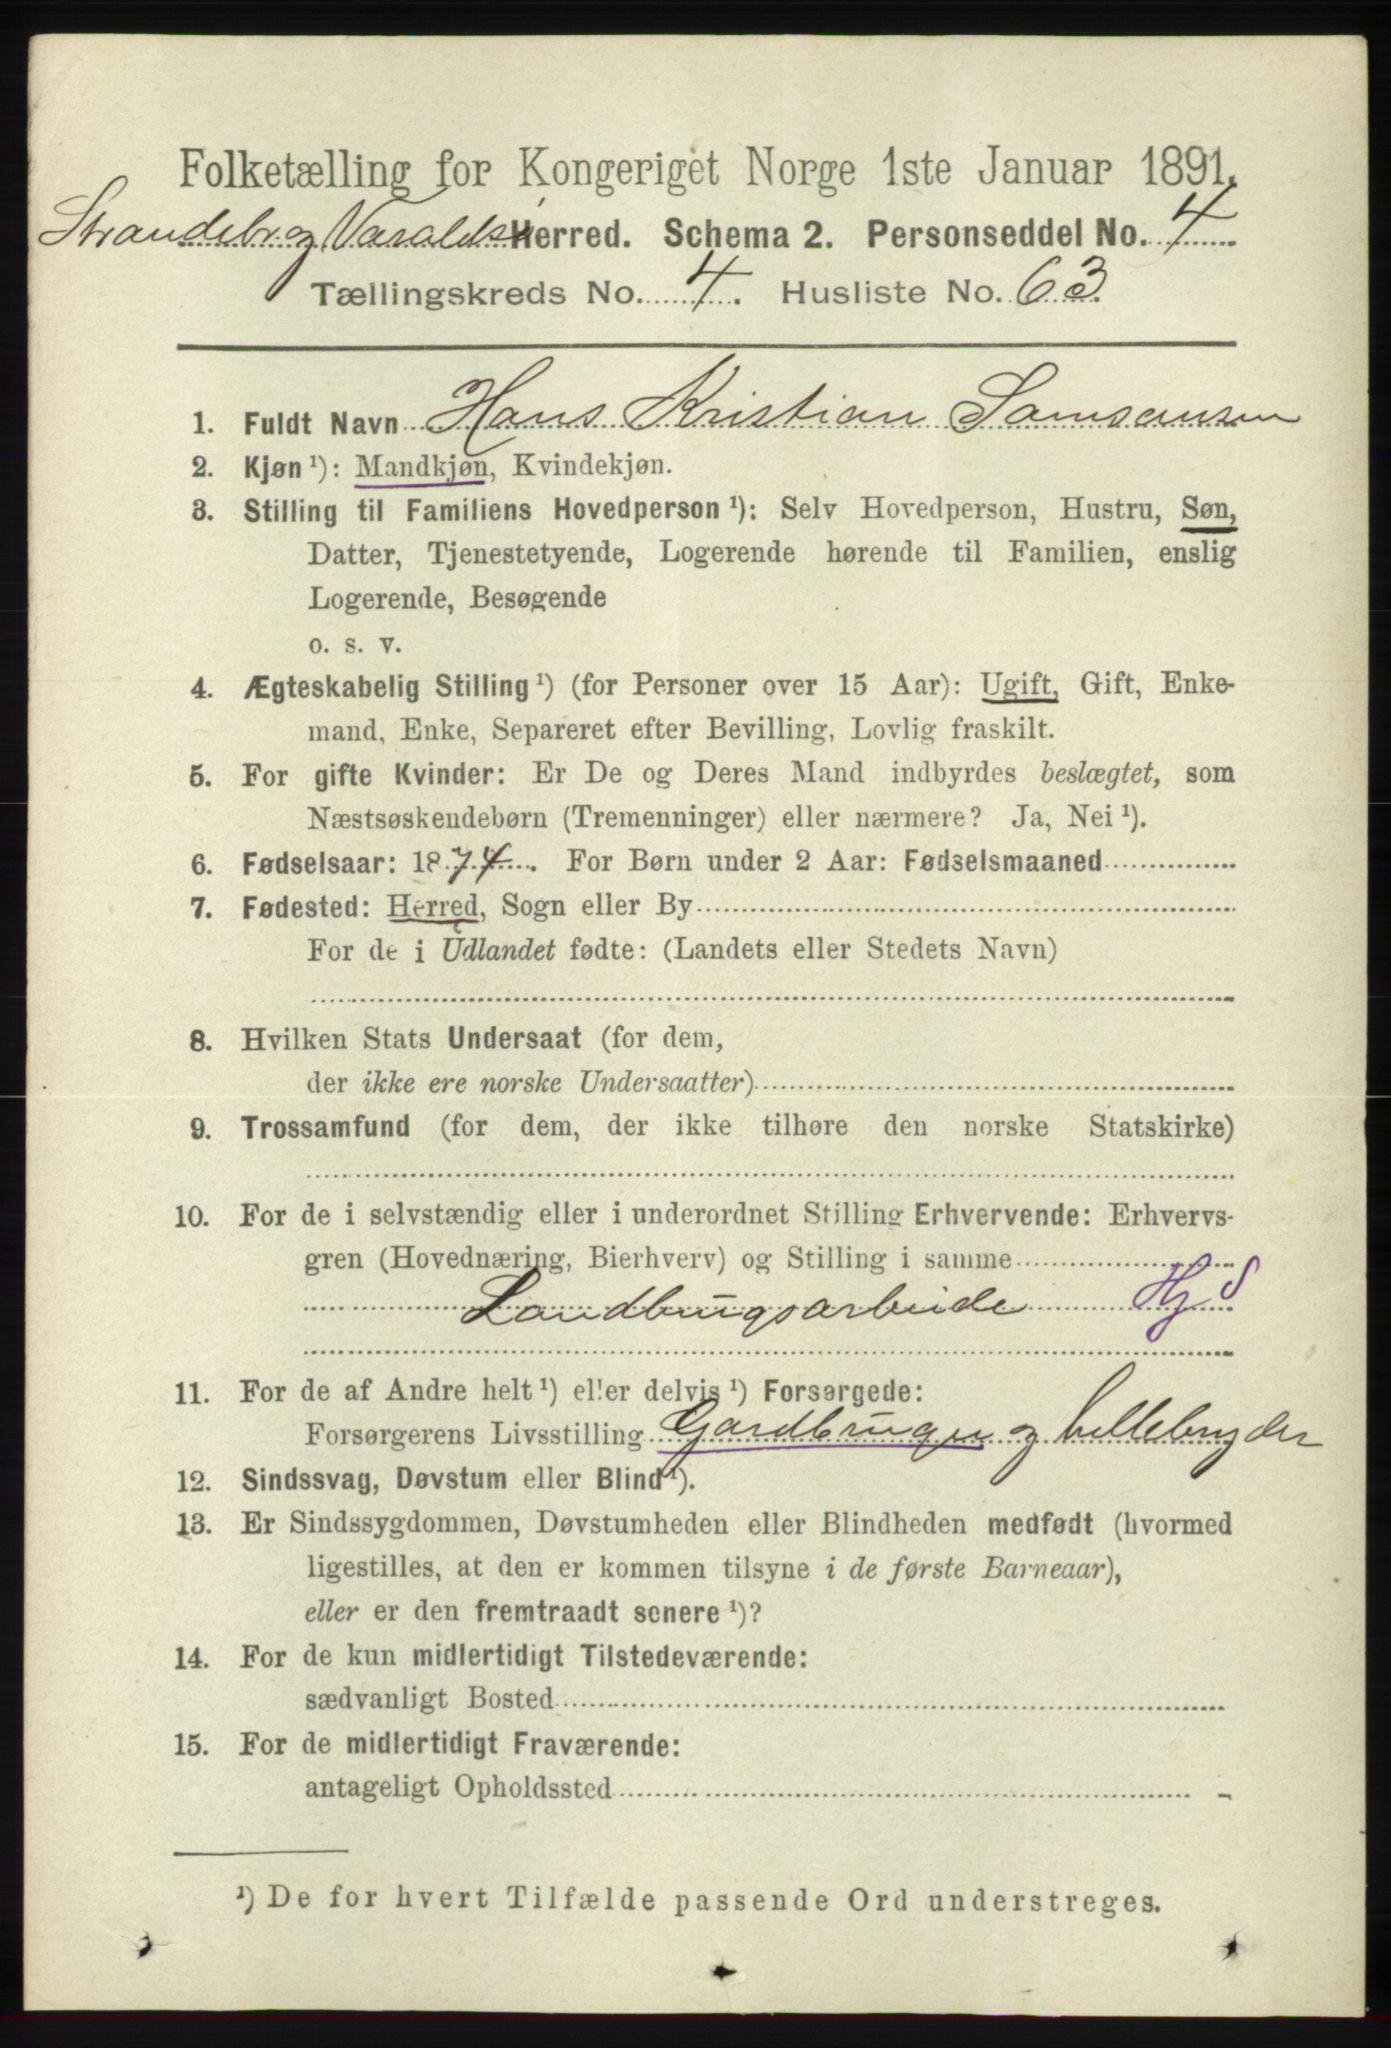 Folketælling for Kongeriget Norge 1ste Januar 1891.
Strandeb. og Varaldsø Herred. Schema 2. Personseddel No. 4
Tællingskreds No. 4. Husliste No. 63.
1. Fuldt Navn Hans Kristian Samsonsen
2. Kjøn ¹): Mandkjøn, Kvindekjøn.
3. Stilling til Familiens Hovedperson ¹): Selv Hovedperson, Hustru, Søn,
Datter, Tjenestetyende, Logerende hørende til Familien, enslig
Logerende, Besøgende
o. s. v.
4. Ægteskabelig Stilling ¹) (for Personer over 15 Aar): Ugift, Gift, Enke-
mand, Enke, Separeret efter Bevilling, Lovlig fraskilt.
5. For gifte Kvinder: Er De og Deres Mand indbyrdes beslægtet, som
Næstsøskendebørn (Tremenninger) eller nærmere? Ja, Nei ¹).
6. Fødselsaar: 1874. For Børn under 2 Aar: Fødselsmaaned
7. Fødested: Herred, Sogn eller By
For de i Udlandet fødte: (Landets eller Stedets Navn)
8. Hvilken Stats Undersaat (for dem,
der ikke ere norske Undersaatter)
9. Trossamfund (for dem, der ikke tilhøre den norske Statskirke)
10. For de i selvstændig eller i underordnet Stilling Erhvervende: Erhvervs-
gren (Hovednæring, Bierhverv) og Stilling i samme
Landbrugsarbeide Hj S
11. For de af Andre helt ¹) eller delvis ¹) Forsørgede:
Forsørgerens Livsstilling Gardbruger og
12. Sindssvag, Døvstum eller Blind ¹).
13. Er Sindssygdommen, Døvstumheden eller Blindheden medfødt (hvormed
ligestilles, at den er kommen tilsyne i de første Barneaar),
eller er den fremtraadt senere ¹)?
14. For de kun midlertidigt Tilstedeværende:
sædvanligt Bosted
15. For de midlertidigt Fraværende:
antageligt Opholdssted
¹) De for hvert Tilfælde passende Ord understreges.